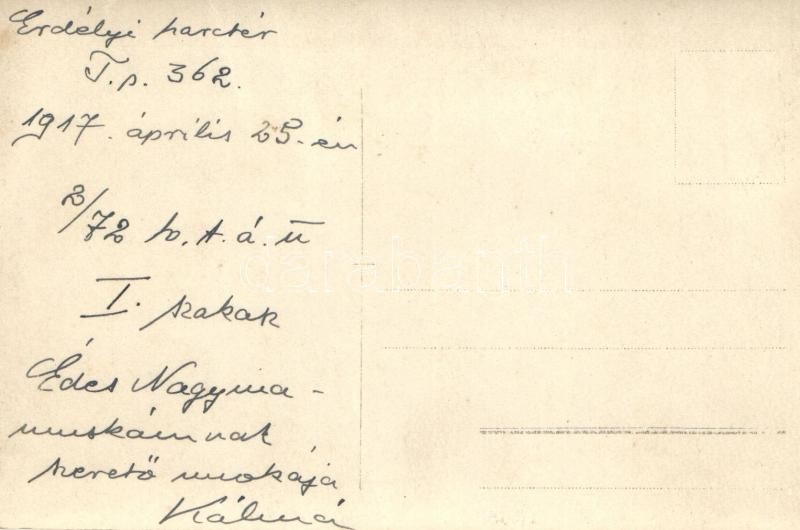 Erdélyi harctér
T.p. 362.
1917. április 25.-én
2/72 h. t. á. ü
I. szakasz
Édes Nagyma-
muskámnak
szerető unokája
Kálmán
darabanth